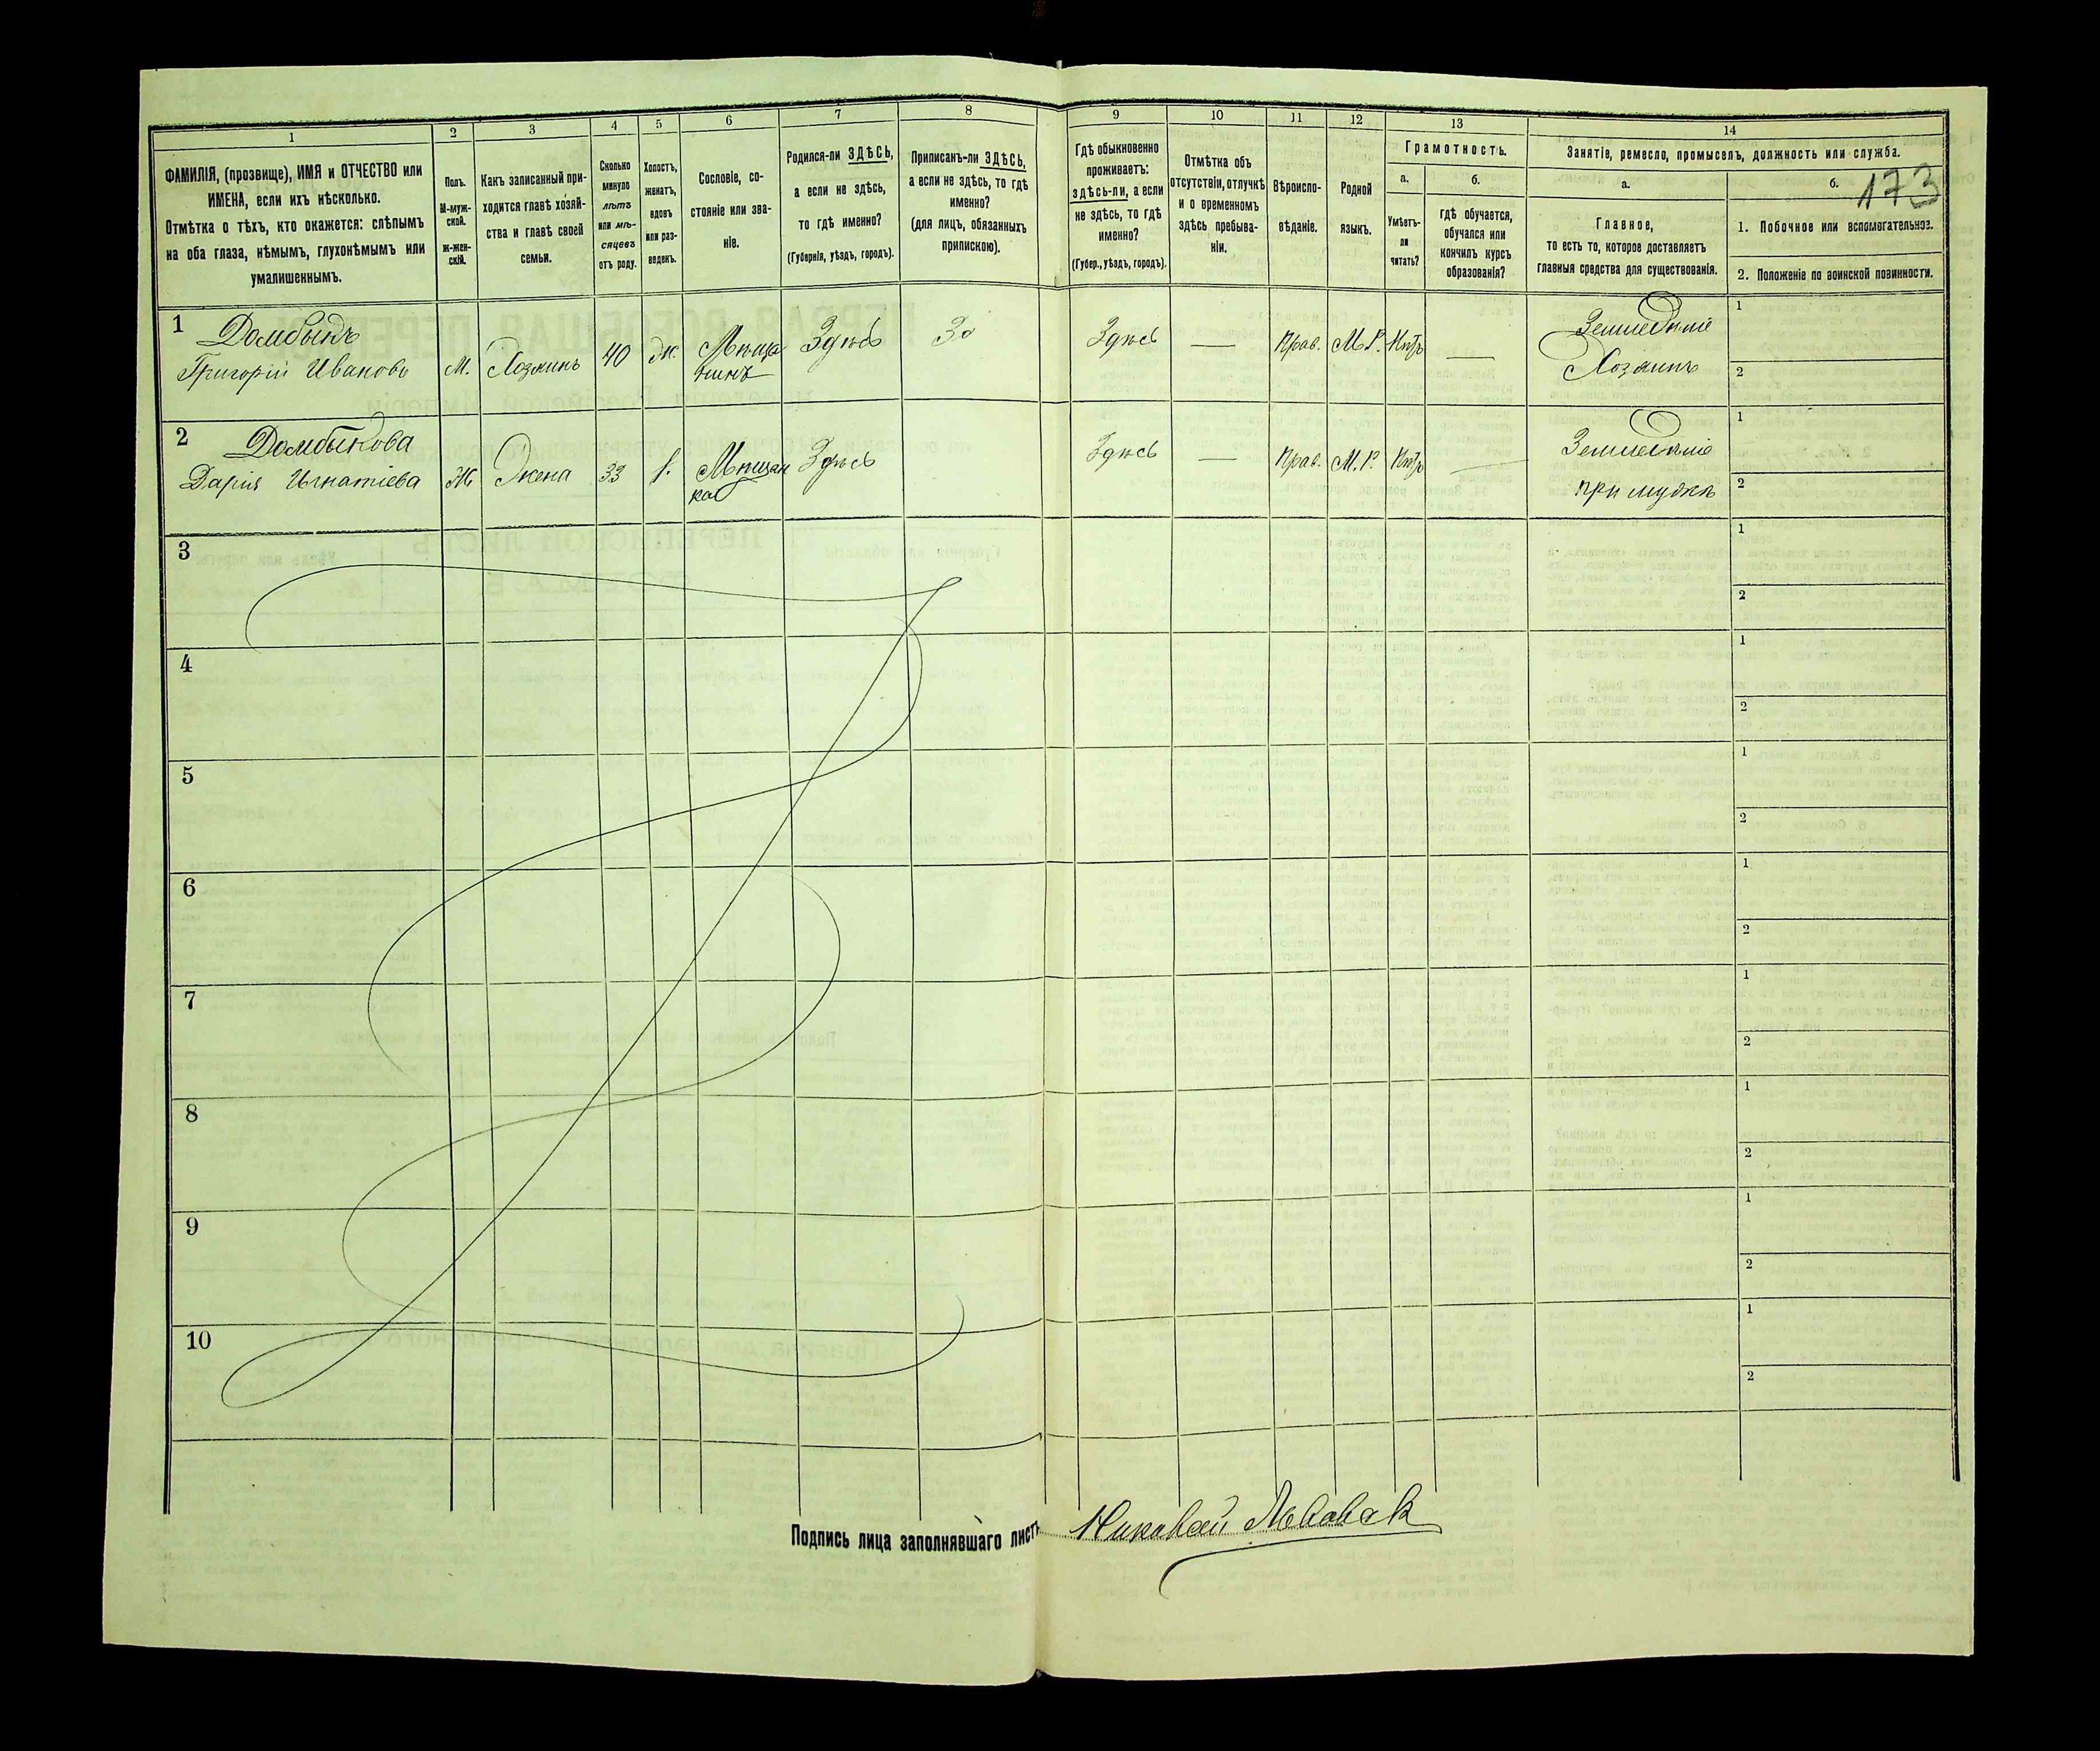 173
1
2
3
4
5
6
7
8
9
10
11
12
13
14
ФАМИЛІЯ, (прозвище), ИМЯ и ОТЧЕСТВО или
ИМЕНА, если ихъ нѣсколько.
Отмѣтка о тѣхъ, кто окажется: слѣпымъ
на оба глаза, нѣмымъ, глухонѣмымъ или
умалишеннымъ.
Полъ.
М-муж-
ской.
Ж-жен-
скій.
Какъ записанный при-
ходится главѣ хозяй-
ства и главѣ своей
семьи.
Сколько
минуло
лѣтъ
или мѣ-
сяцевъ
отъ роду.
Холостъ,
женатъ,
вдовъ
или раз-
веденъ.
Сословіе, со-
стояніе или зва-
ніе.
Родился-ли ЗДѢСЬ,
а если не здѣсь,
то гдѣ именно?
(Губернія, уѣздъ, городъ).
Приписанъ-ли ЗДѢСЬ,
а если не здѣсь, то гдѣ
именно?
(для лицъ, обязанныхъ
припискою).
Гдѣ обыкновенно
проживаетъ:
здѣсь-ли, а если
не здѣсь, то гдѣ
именно?
(Губер., уѣздъ, городъ).
Отмѣтка объ
отсутствіи, отлучкѣ
и о временномъ
здѣсь пребыва-
ніи.
Вѣроиспо-
вѣданіе.
Родной
языкъ.
Грамотность.
а.
Умѣетъ-
ли
читать?
б.
гдѣ обучается,
обучался или
кончилъ курсъ
образованія?
Занятіе, ремесло, промыселъ, должность или служба.
а.
Главное,
то есть то, которое доставляетъ
главныя средства для существованія.
б.
1. Побочное или вспомогательное.
2. Положеніе по воинской повинности.
1
Григорій Ивановъ
М.
Хозяинъ
40
Ж.
Мѣща
нинъ
Здѣсь
Зд
Здѣсь
—
Прав.
М.Р.
Нѣтъ
—
Земледѣліе
Хозяинъ
1
2
2
Дарія Игнатіева
Ж
Жена
33
Мѣщан
ка
Здѣсь
Здѣсь
—
Прав.
М.Р.
Нѣтъ
—
Земледѣліе
при мужѣ
1
2
3
1
2
4
1
2
5
1
2
6
1
2
7
1
2
8
1
2
9
1
2
10
1
2
Подпись лица заполнявшаго листъ
Николай